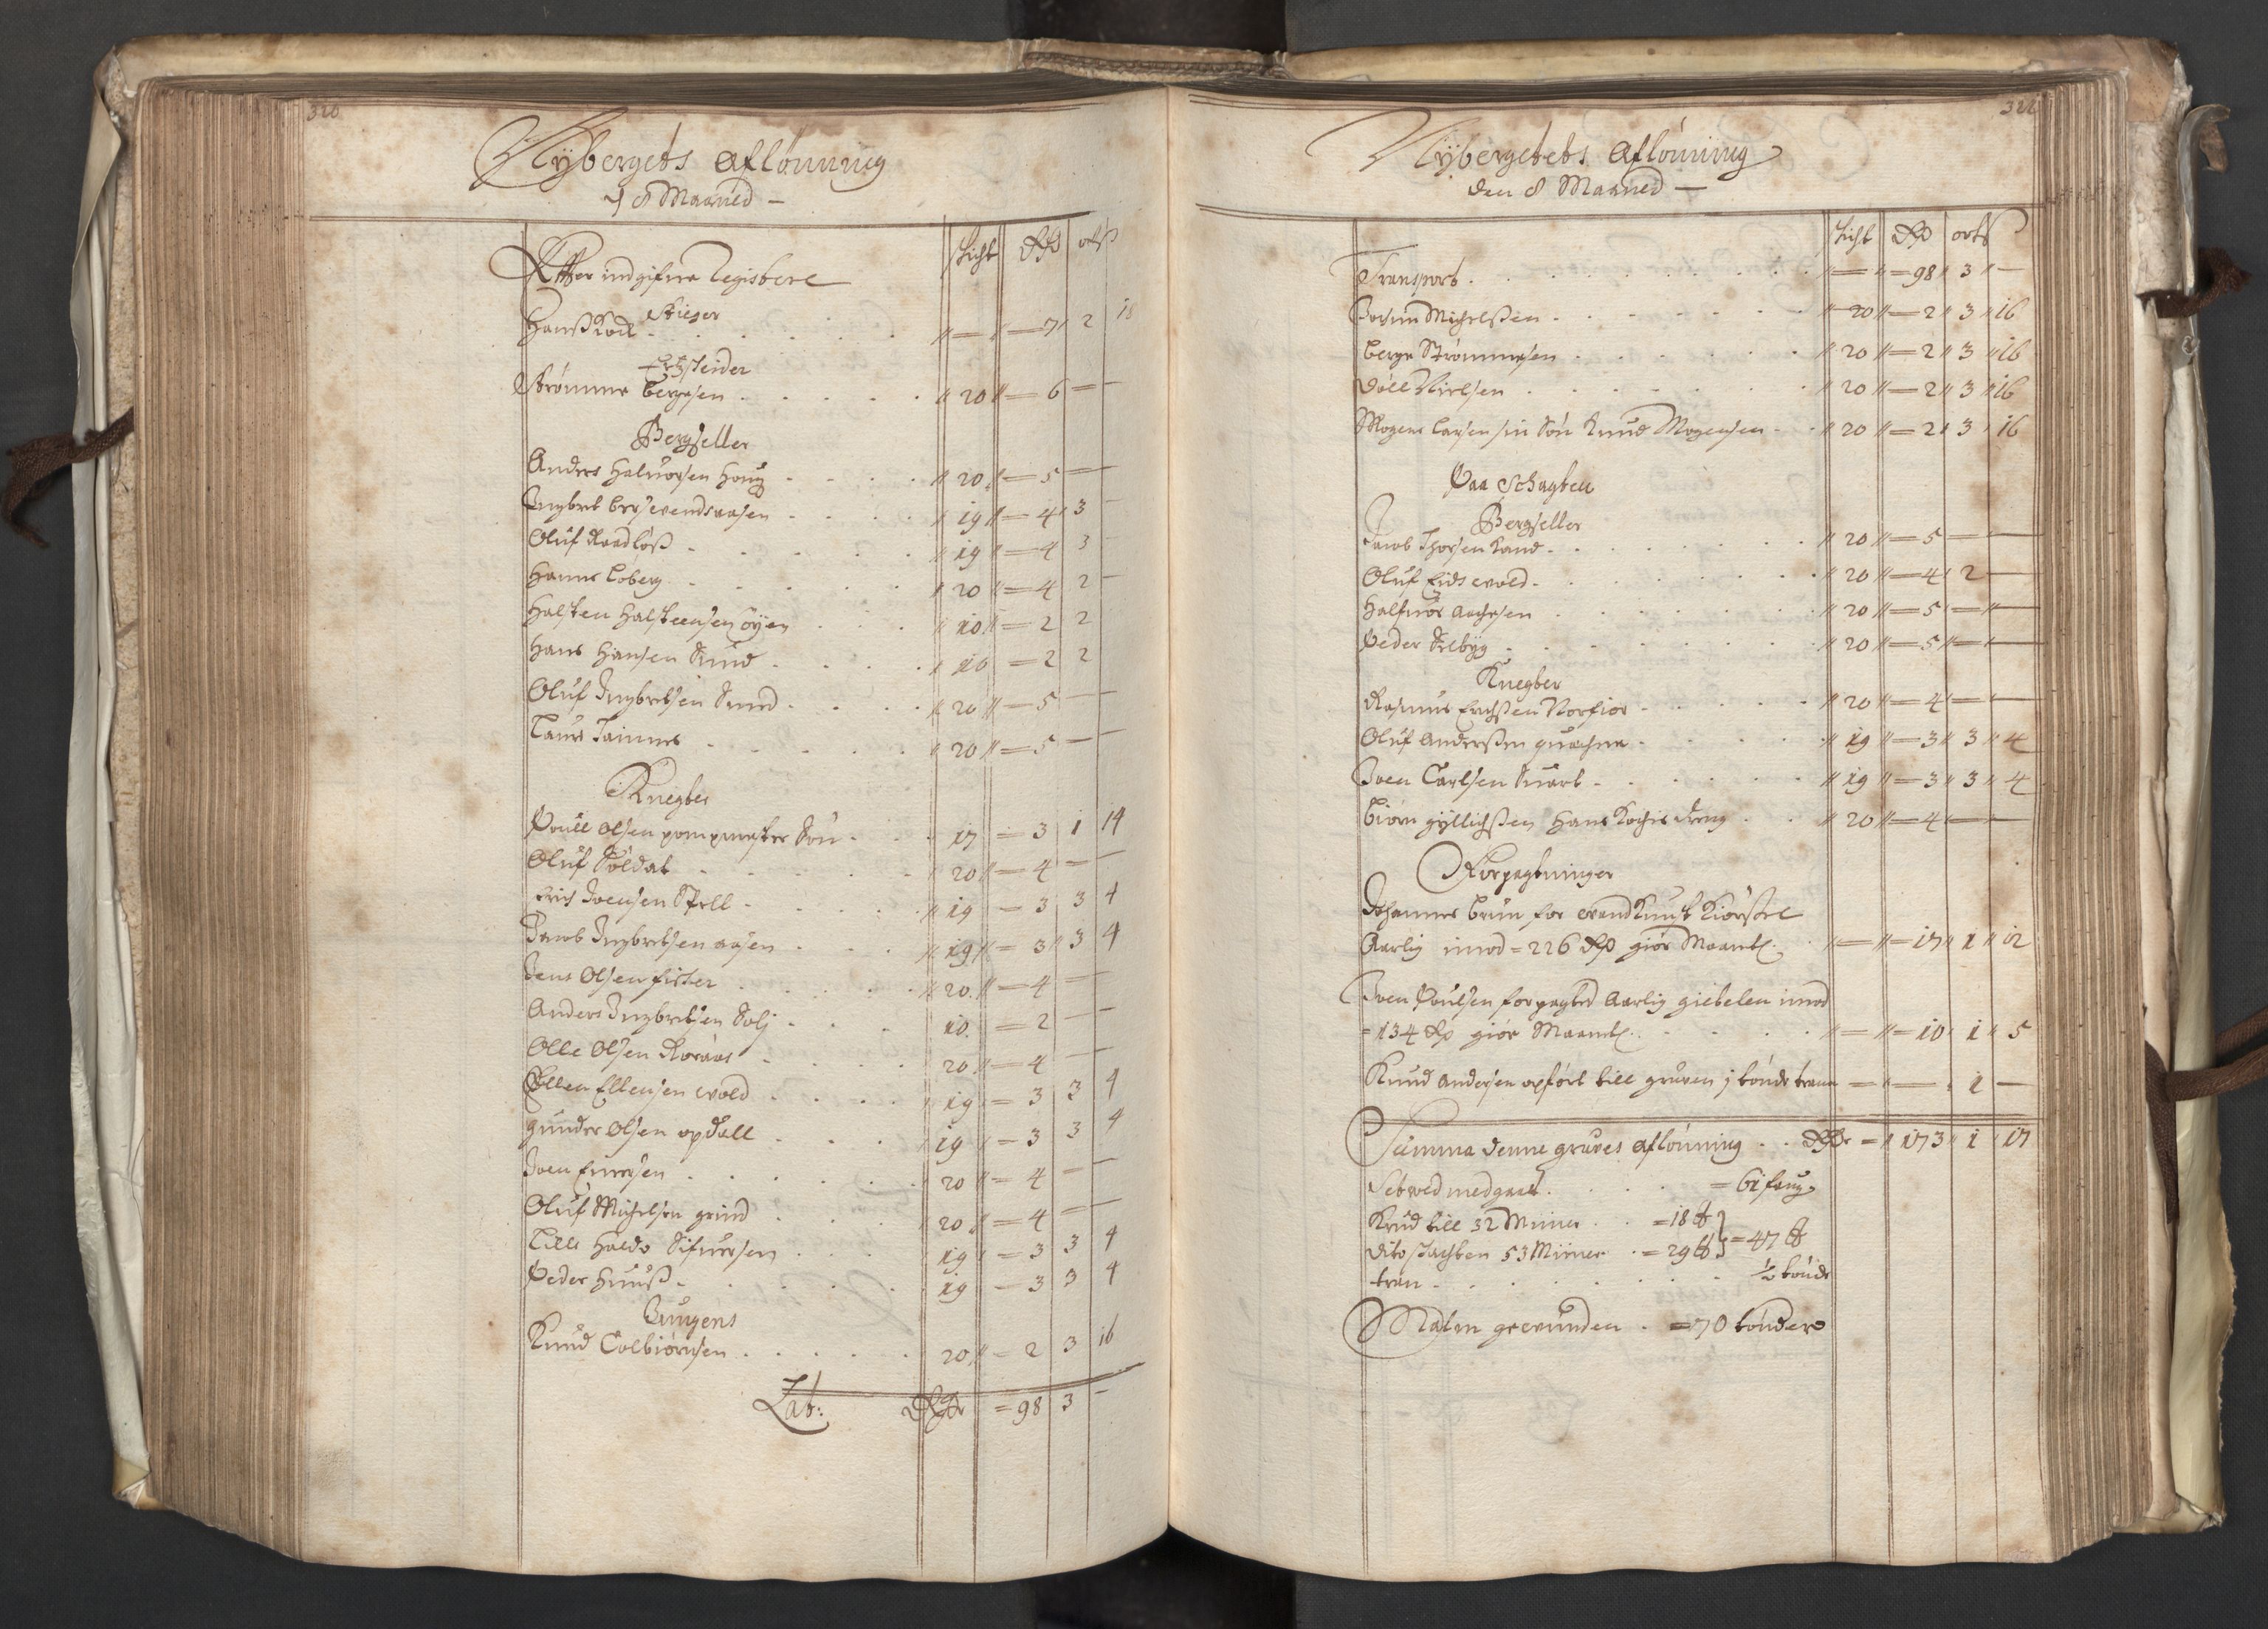 320
Nÿbergets Aflönning
d 8 Maaned –
Schicht Rdr ortß
Effter indgifne Registere
Stieger
Hanß Koch – 7 2 18
Ertzscheider
Strömme Bergesen 20 6 – –
Bergseller
Anders Haluorsen Houg 20 5 –
Ingbret Bresevendsaasen 19 4 3 –
Oluf Raadløß 19 4 3 –
Hanns Soberg 20 4 2 –
Halsten Halsteensen öyen 10 2 2
Hans Hansen Smid 10 2 2
Oluf Ingbretsen Smed 20 5 –
Laurs Tamnes 20 5 – –
Knegter
Pouell Olsen pompmester Sön 17 3 1 14
Oluf Soldat 20 4 – –
Erich Joensen Stell 19 3 3 4
Jacob Ingbretsen aasen 19 3 3 4
Jens Olsen fisker 20 4 – –
Anders Ingbretsen Solj 10 2 – –
Olle Olsen Roraas 20 4 – –
Ellen Ellensen wold 19 3 3 4
Gunder Olsen opdall 19 3 3 4
Joen Einersen 20 4 – –
Oluf Michelsen grind 20 4 – –
Lille Haldo Sifuersen 19 3 3 4
Peder Huuß 19 3 3 4
Jungens
Knud Colbiörnsen 20 2 3 16
Lat: Rdr = 98 3 –
322
Nÿbergetets Aflönning
den 8 Maaned –
Schicht Rdr orts
Transport – 98 3 –
Jochim Michelßen 20 2 3 16
Berge Strömmesen 20 2 3 16
Döll Nielsen 20 2 3 16
Mogens Larsen sin Sön Knud Mogensen 20 2 3 16
Paa Schagten
Bergseller
Jacob Thorsen Rand 20 5 – –
Oluf Eidswold 20 4 2 –
Halfuor Aachesen 20 5 – –
Peder Selbÿg 20 5 – –
Knegter
Rasmus Erichßen Norfior 20 4 – –
Oluf Anderßen quachne 19 3 3 4
Joen Carlsen Suart 19 3 3 4
Biörn gÿllichßen Hans Kochis dreng 20 4 – –
Forpagtninger
Johannes Brun for wandKunst Kiörsel
Aarlig imod = 226 Rdr giör Maantl. – 17 1 12
Joen Poulsen forpagted Aarlig giebelen imod
= 134 Rdr giör Maantl. – 10 1 5
Knud Andersen opfört till gruven j tönde trann – – 1 –
Summa denne gruves Aflönning Rdr = 173 1 17
Setwed medgaaet = 61 faug
Krud till 32 Miiner = 18 ℔ } = 47 ℔
Dito schachten 53 Miiner = 29 ℔
tran ½ tönde
Malm gewunden = 70 tönder